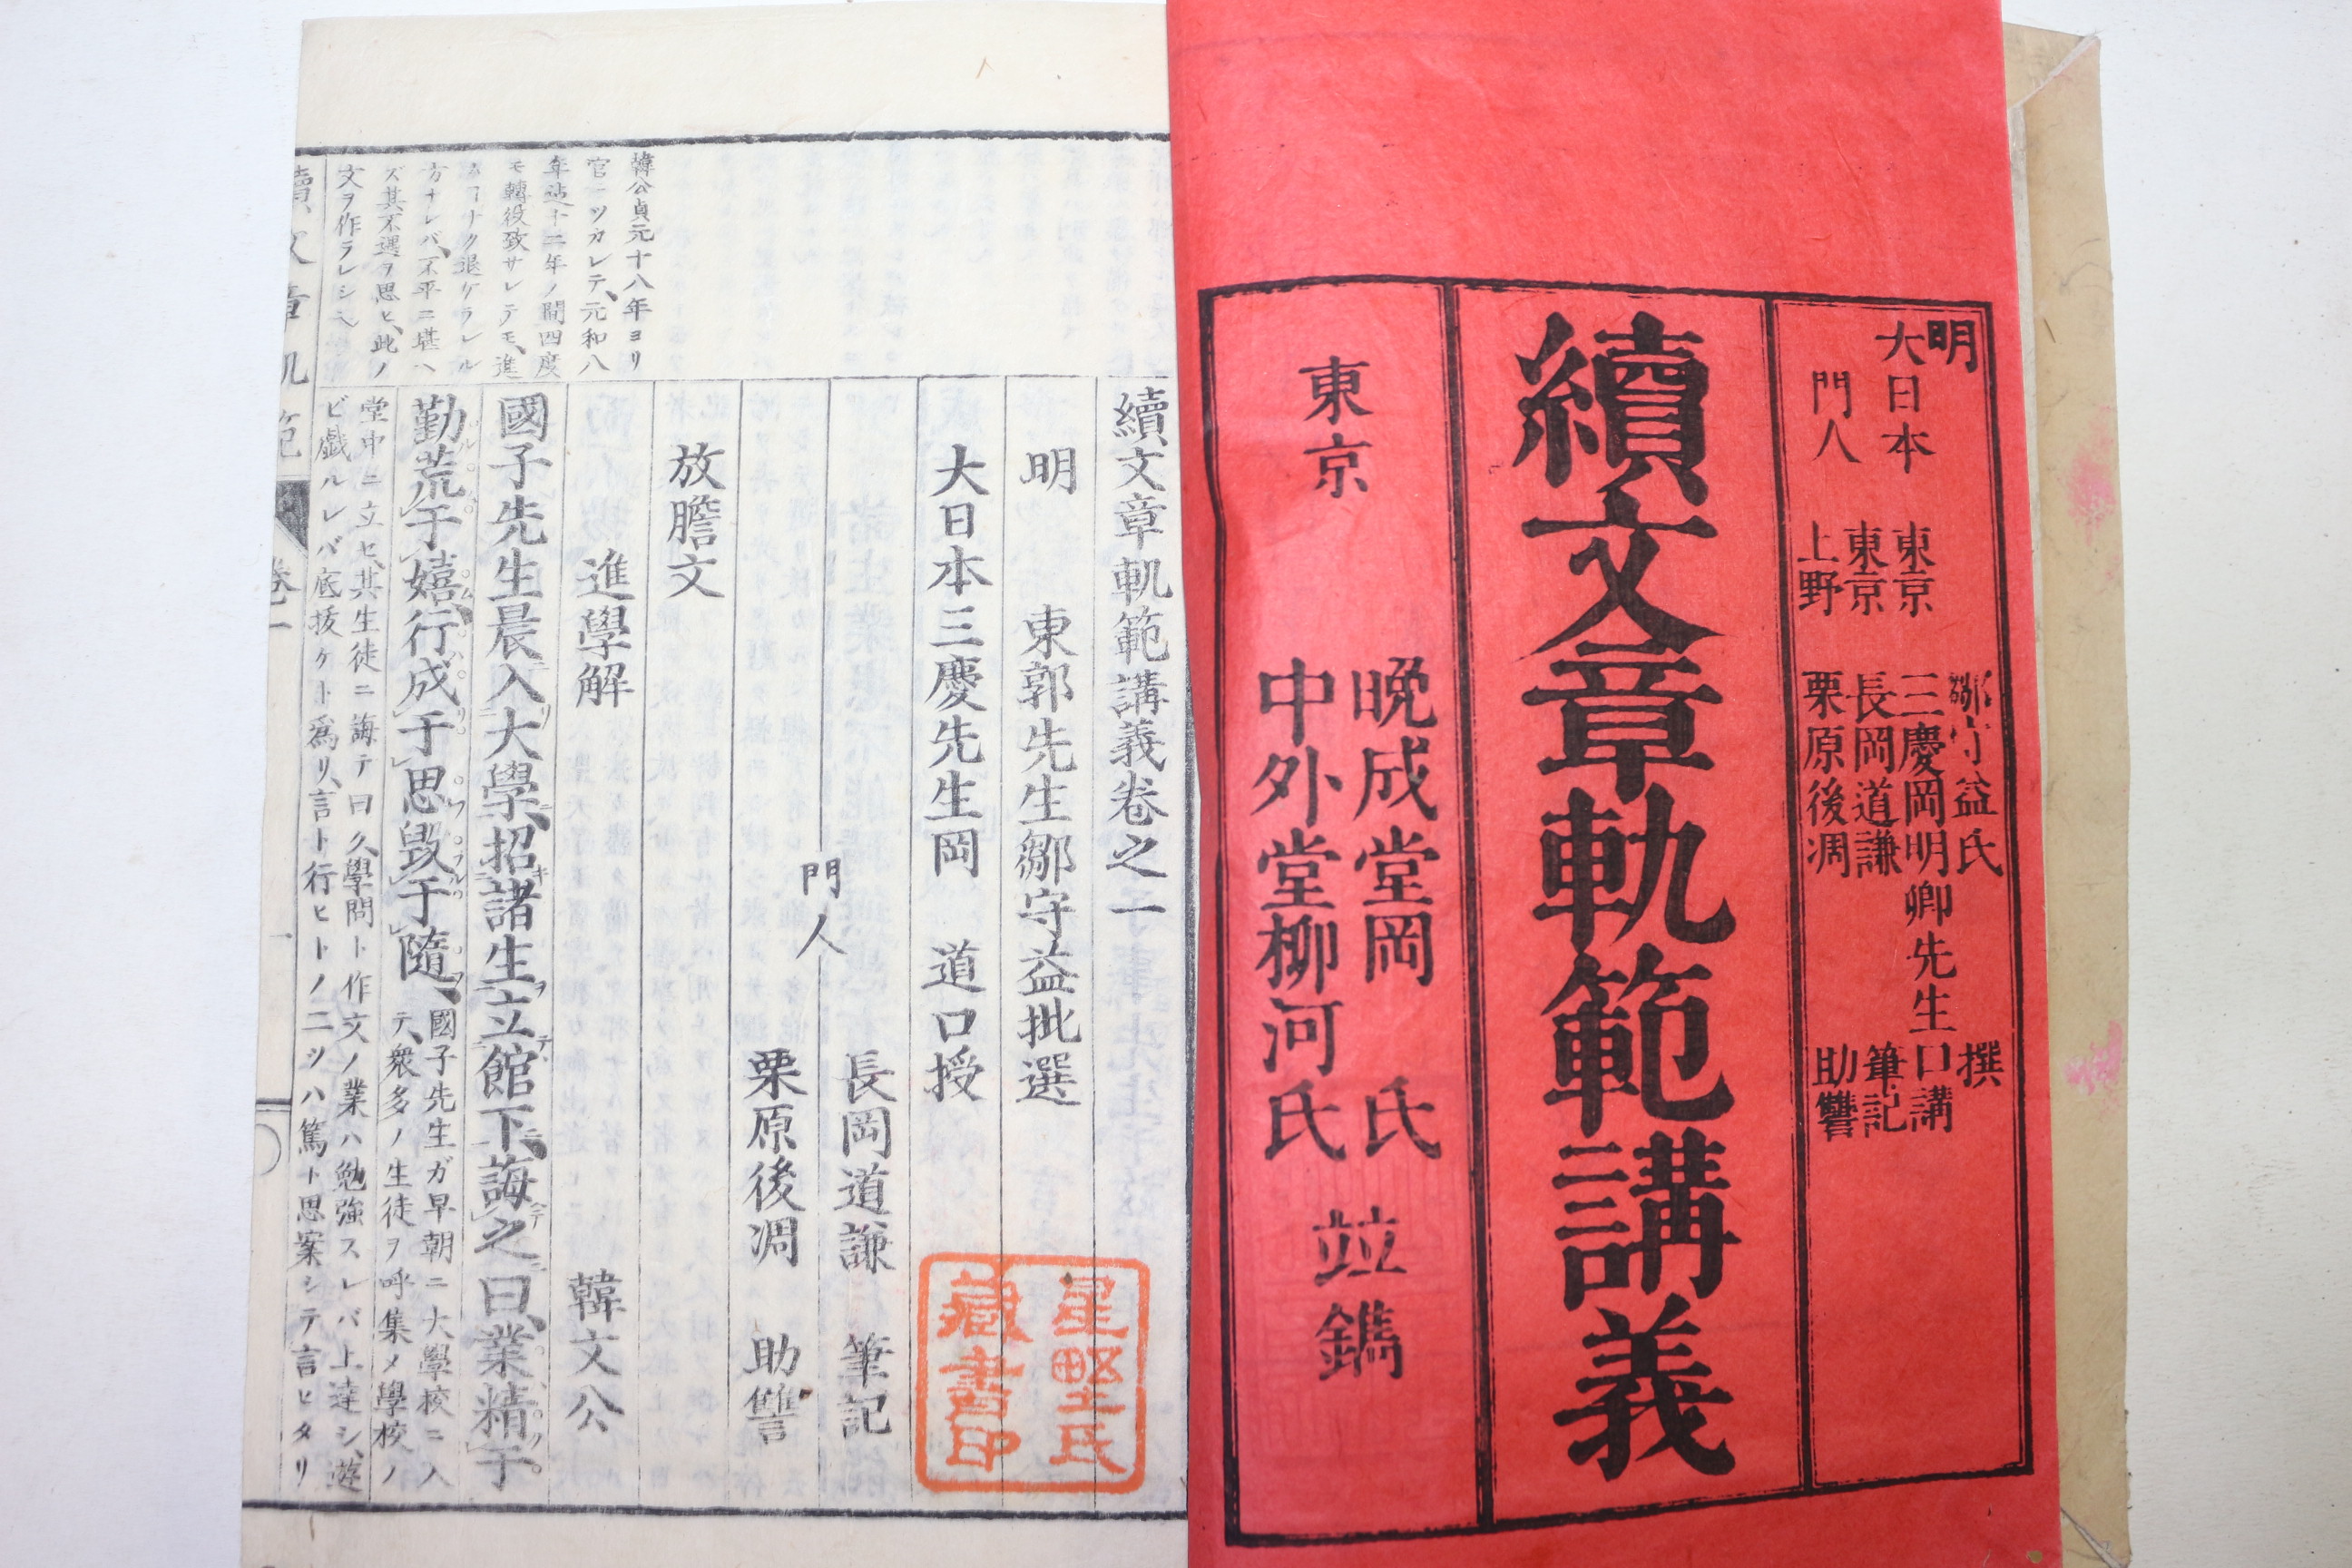 明 鄒守益氏 撰
大日本 東京 三慶岡明卿先生 口講
東京 長岡道謙 筆記
門人 上野 栗原後凋 助讐
續文章軌範講義
東京 晩成堂岡氏
中外堂柳河氏
竝鐫
續文章軌範講義卷之一
明 東郭先生鄒守益批選
大日本三慶先生岡 道口授
門人
長岡道謙 筆記
栗原後凋 助讐
星野氏
藏書印
放膽文
進學解 韓文公
韓公貞元十八年ヨリ
官ニツカレテ、元和八
年迄十二年ノ間四度
モ轉役致サレテモ、進
ムコトナク退ケラレル
方ナレバ、不平ニ堪ヘ
ズ其不遇ヲ思ヒ、此ノ
文ヲ作ラレシ
國子先生晨入大學、招諸生立館下、誨之曰、業精于
勤荒于嬉、行成于思毀于隨、
國子先生ガ早朝ニ大學校ニ入
テ、衆多ノ生徒ヲ呼集メ學校ノ
堂中ニ立セ、其生徒ニ誨テ曰久學問ト作文ノ業ハ勉強スレバ上達シ、遊
ビ戯ルレバ底拔ケト爲リ、言ト行ヒトノ二ツハ篤ト思案シテ言ヒタリ
續文章軌範 卷一 一